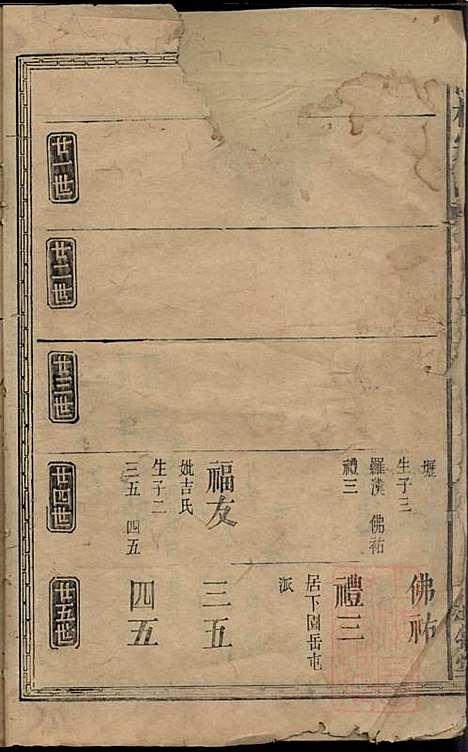 廿一世
廿二世
廿三世
廿四世
壢
生子三
羅漢 佛祐
禮三
福友
妣吉氏
生子二
三五 四五
廿五世
佛祐
禮三
居下園岳屯
派
三五
四五